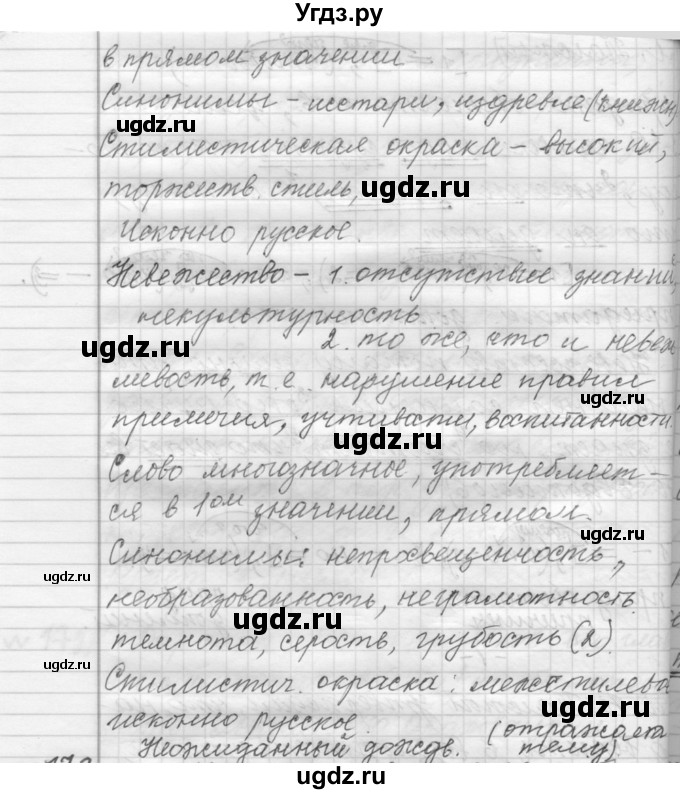 Угдз.ру
в прямом значении
Синонимы - исстари, издревле (книжн)
ugdz.ru
Стилистическая окраска - высокий,
торжеств. стиль, ugdz.ru
Исконно русское.
ugdz.ru
Невежество - 1. отсутствие знаний,
некультурность
ugdz.ru 2. то же, что и невеж
ливость, т. е. нарушение правил ugdz.ru
приличия, учтивости, воспитанности.
ugdz.ru
Слово многозначное, употребляет-
ся в 1ом значении, прямом.
Синонимы: непросвещенность,
ugdz.ru
необразованность, неграмотность
ugdz.ru
темнота, серость, грубость (2).
ugdz.ru
Стилистич. окраска: межстилева
исконно русское. ugdz.ru
Неожиданный дождь. (отражает
тему)
ugdz.ru